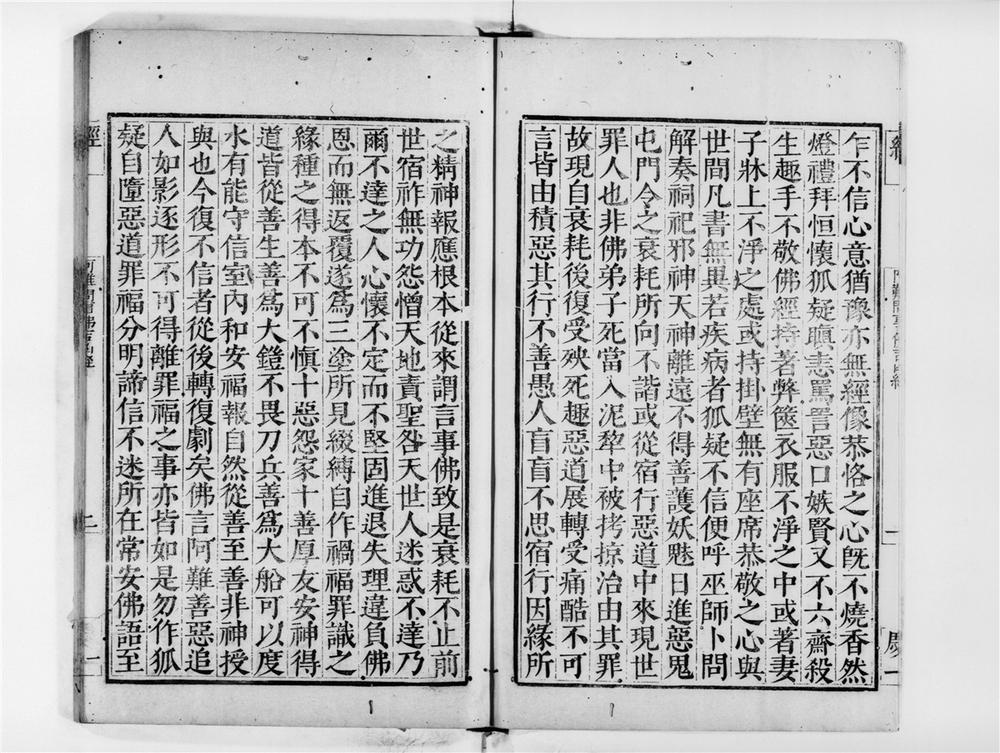 乍不信心意猶豫亦無經像恭恪之心旣不燒香然
燈禮拜恒懷狐疑瞋恚罵詈惡口嫉賢又不六齋殺
生趣手不敬佛經持著弊篋衣服不淨之中或著妻
子牀上不淨之處或持掛壁無有座席恭敬之心與
世間凡書無異若疾病者狐疑不信便呼巫師卜問
解奏祠祀邪神天神離遠不得善護妖魅日進惡鬼
屯門令之衰耗所向不諧或從宿行惡道中來現世
罪人也非佛弟子死當入泥犂中被拷掠治由其罪
故現自衰耗後復受殃死趣惡道展轉受痛酷不可
言皆由積惡其行不善愚人盲盲不思宿行因緣所
之精神報應根本從來謂言事佛致是衰耗不止前
世宿祚無功怨憎天地責聖咎天世人迷惑不達乃
爾不達之人心懷不定而不堅固進退失理違負佛
恩而無返覆遂爲三塗所見綴縛自作禍福罪識之
緣種之得本不可不慎十惡怨家十善厚友安神得
道皆從善生善爲大鎧不畏刀兵善爲大船可以度
水有能守信室內和安福報自然從善至善非神授
與也今復不信者從後轉復劇矣佛言阿難善惡追
人如影逐形不可得離罪福之事亦皆如是勿作狐
疑自墮惡道罪福分明諦信不迷所在常安佛語至
經
二